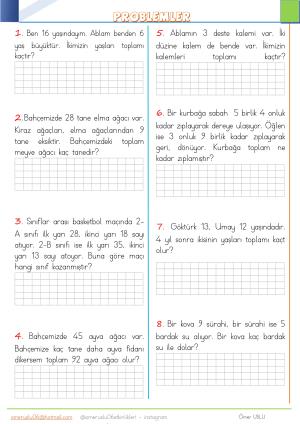 PROBLEMLER
1. Ben 16 yaşındayım. Ablam benden 6
yaş büyüktür. İkimizin yaşları toplamı
kaçtır?
2.Bahçemizde 28 tane elma ağacı var.
Kiraz ağaçları, elma ağaçlarından 9
tane eksiktir. Bahçemizdeki toplam
meyve ağacı kaç tanedir?
3. Sınıflar arası basketbol maçında 2-
A sınıfı ilk yarı 28, ikinci yarı 18 sayı
atıyor. 2-B sınıfı ise ilk yarı 35, ikinci
yarı 13 sayı atıyor. Buna göre maçı
hangi sınıf kazanmıştır?
4. Bahçemizde 45 ayva ağacı var.
Bahçemize kaç tane daha ayva fidanı
dikersem toplam 92 ayva ağacı olur?
5. Ablamın 3 deste kalemi var. İki
düzine kalem de bende var. İkimizin
kalemleri toplamı kaçtır?
6. Bir kurbağa sabah 5 birlik 4 onluk
kadar zıplayarak dereye ulaşıyor. Öğlen
ise 3 onluk 9 birlik kadar zıplayarak
geri, dönüyor. Kurbağa toplam ne
kadar zıplamıştır?
7. Göktürk 13, Umay 12 yaşındadır.
4 yıl sonra ikisinin yaşları toplamı kaç
olur?
8. Bir kova 9 sürahi, bir sürahi ise 5
bardak su alıyor. Bir kova kaç bardak
su ile dolar?
omeruslu06@hotmail.com @omeruslu06etkinlikleri - instagram Ömer USLU